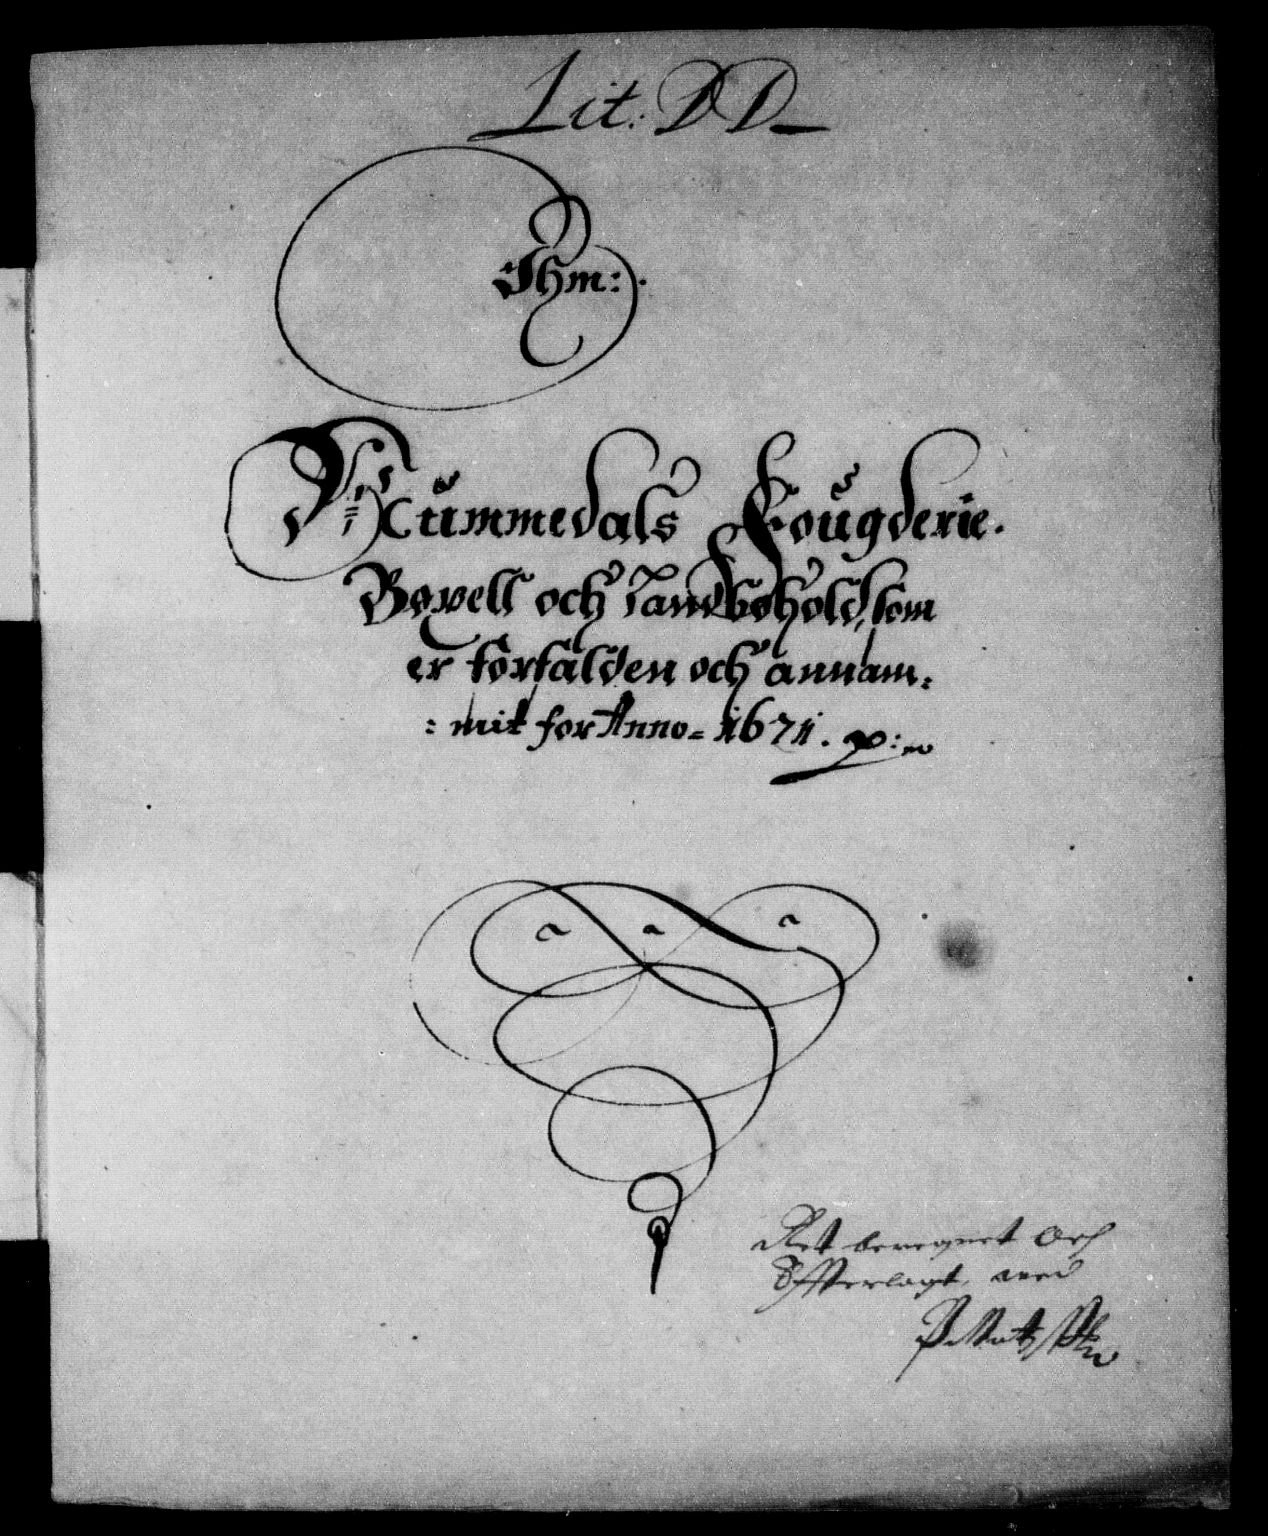 Lit: DD
Thm:
Nummedals Fougderie.
Bøxell och Landbohold, som
er forfalden och annam:
: mit for Anno= 1671. p:
Ret beregnet Och
Effterlagt, wed